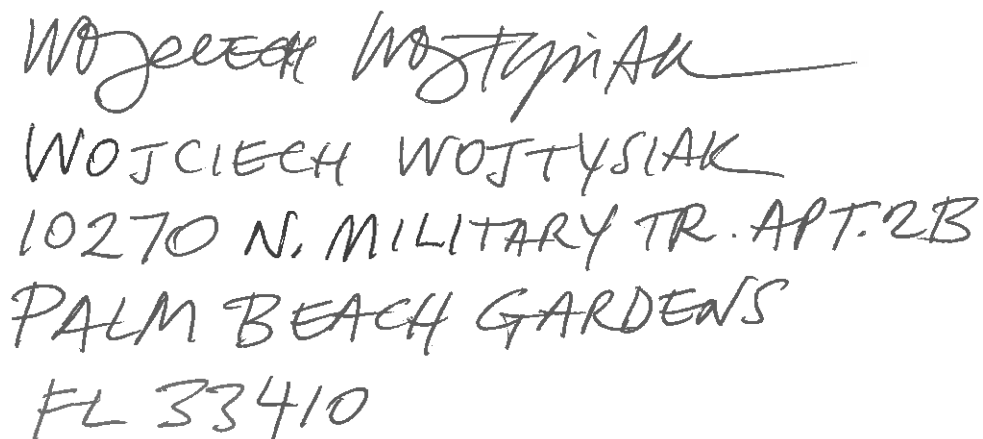 Wojciech Wojtysiak
WOJCIECH WOJTYSIAK
10270 N. MILITARY TR. APT. 2B
PALM BEACH GARDENS
FL 33410